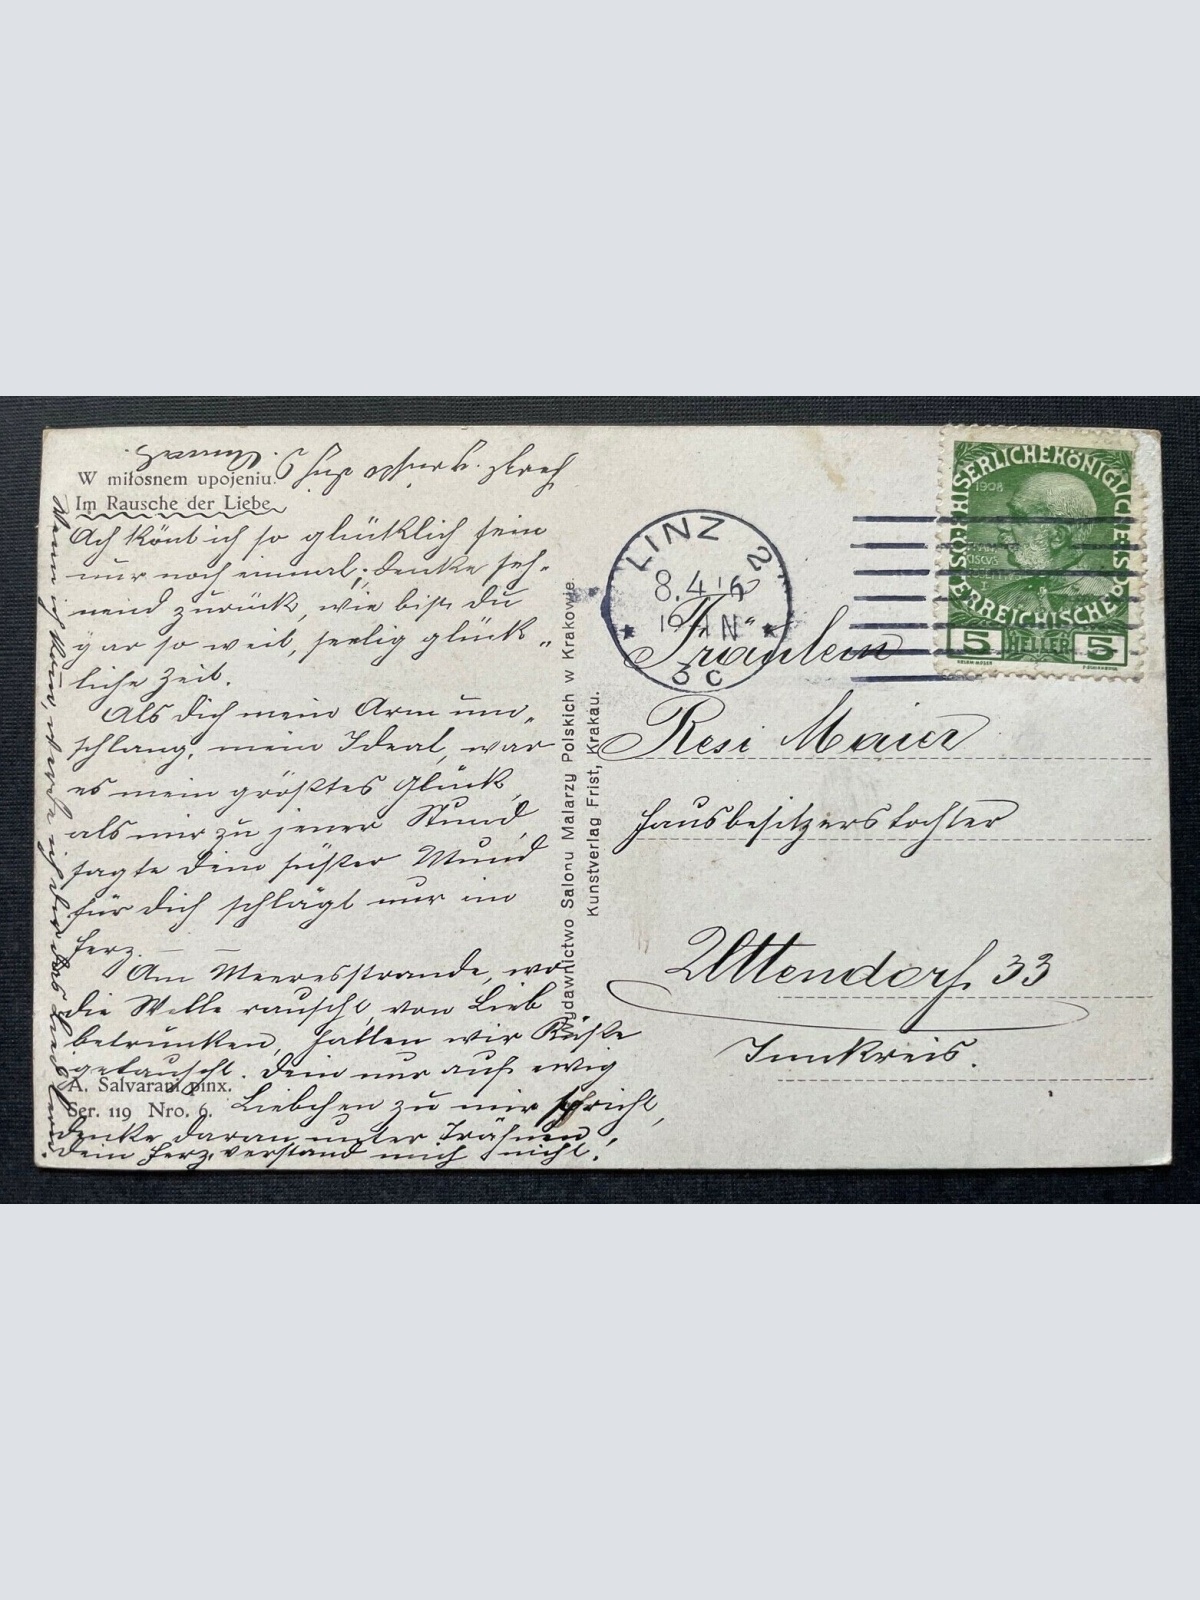 W miłosnem upojeniu.
Im Rausche der Liebe
Ach könt ich so glücklich sein
nur noch einmal, denke seh-
nend zurück, wie bist du
gar so weit, seelig glück-
liche Zeit.
Als dich mein Arm um-
schlang, mein Ideal, war
es mein größtes Glück,
als mir zu jener Stund,
sagte dein süßer Mund
für dich schlägt nur im
Herz. — —
Am Meeresstrande, wo
die Welle rauscht, von Lieb
betrunken, hatten wir Küße
getauscht. Dein nur auf ewig
Liebchen zu mir spricht,
denke daran unter Trähnen,
dein Herz, verstand mich nicht!
A. Salvarani pinx.
Ser. 119 Nro. 6.
Wydawnictwo Salonu Malarzy Polskich w Krakowie.
Kunstverlag Frist, Krakau.
LINZ 2
8.4.16
N
3c
KAISERLICHEKÖNIGLICHE
ÖSTERREICHISCHE
1908
5 HELLER 5
Fräulein
Resi Maier
Hausbesitzerstochter
Uttendorf. 33
Innkreis.